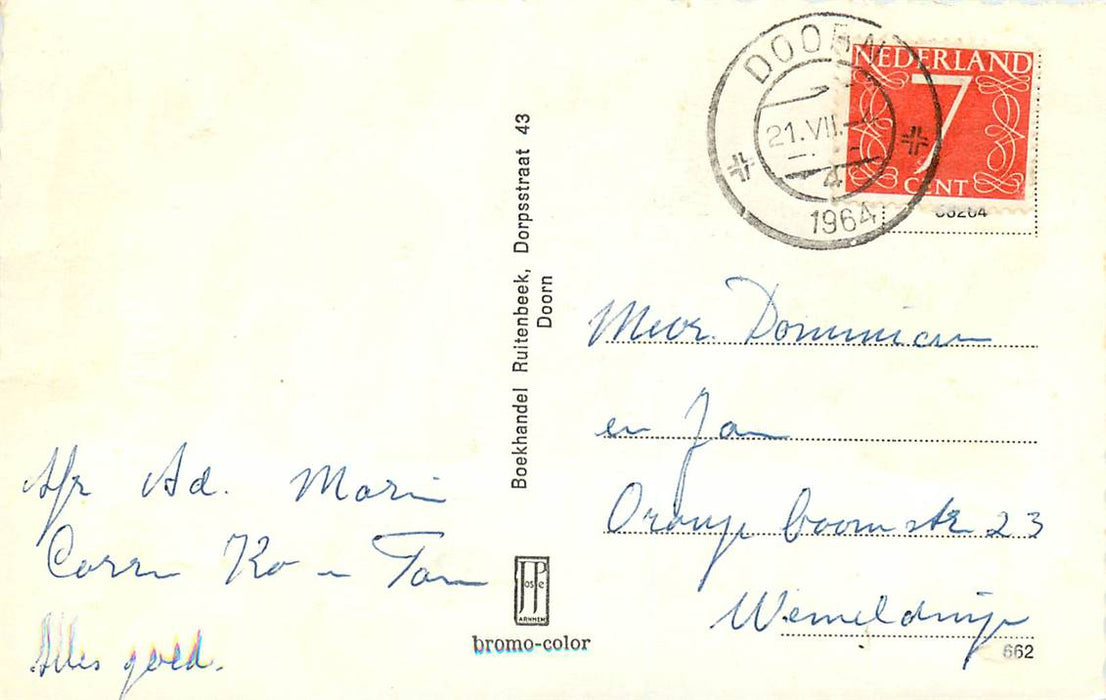 DOORN
21.VII.-
4
1964
NEDERLAND
7
CENT
Boekhandel Ruitenbeek, Dorpsstraat 43
Doorn
Mevr. Dominicus
en Jan
Oranjeboomstr 23
Wemeldinge
Afz Ad. Marin
Corrn Ko en Tom
Alles goed.
JosPe
ARNHEM
bromo-color
662